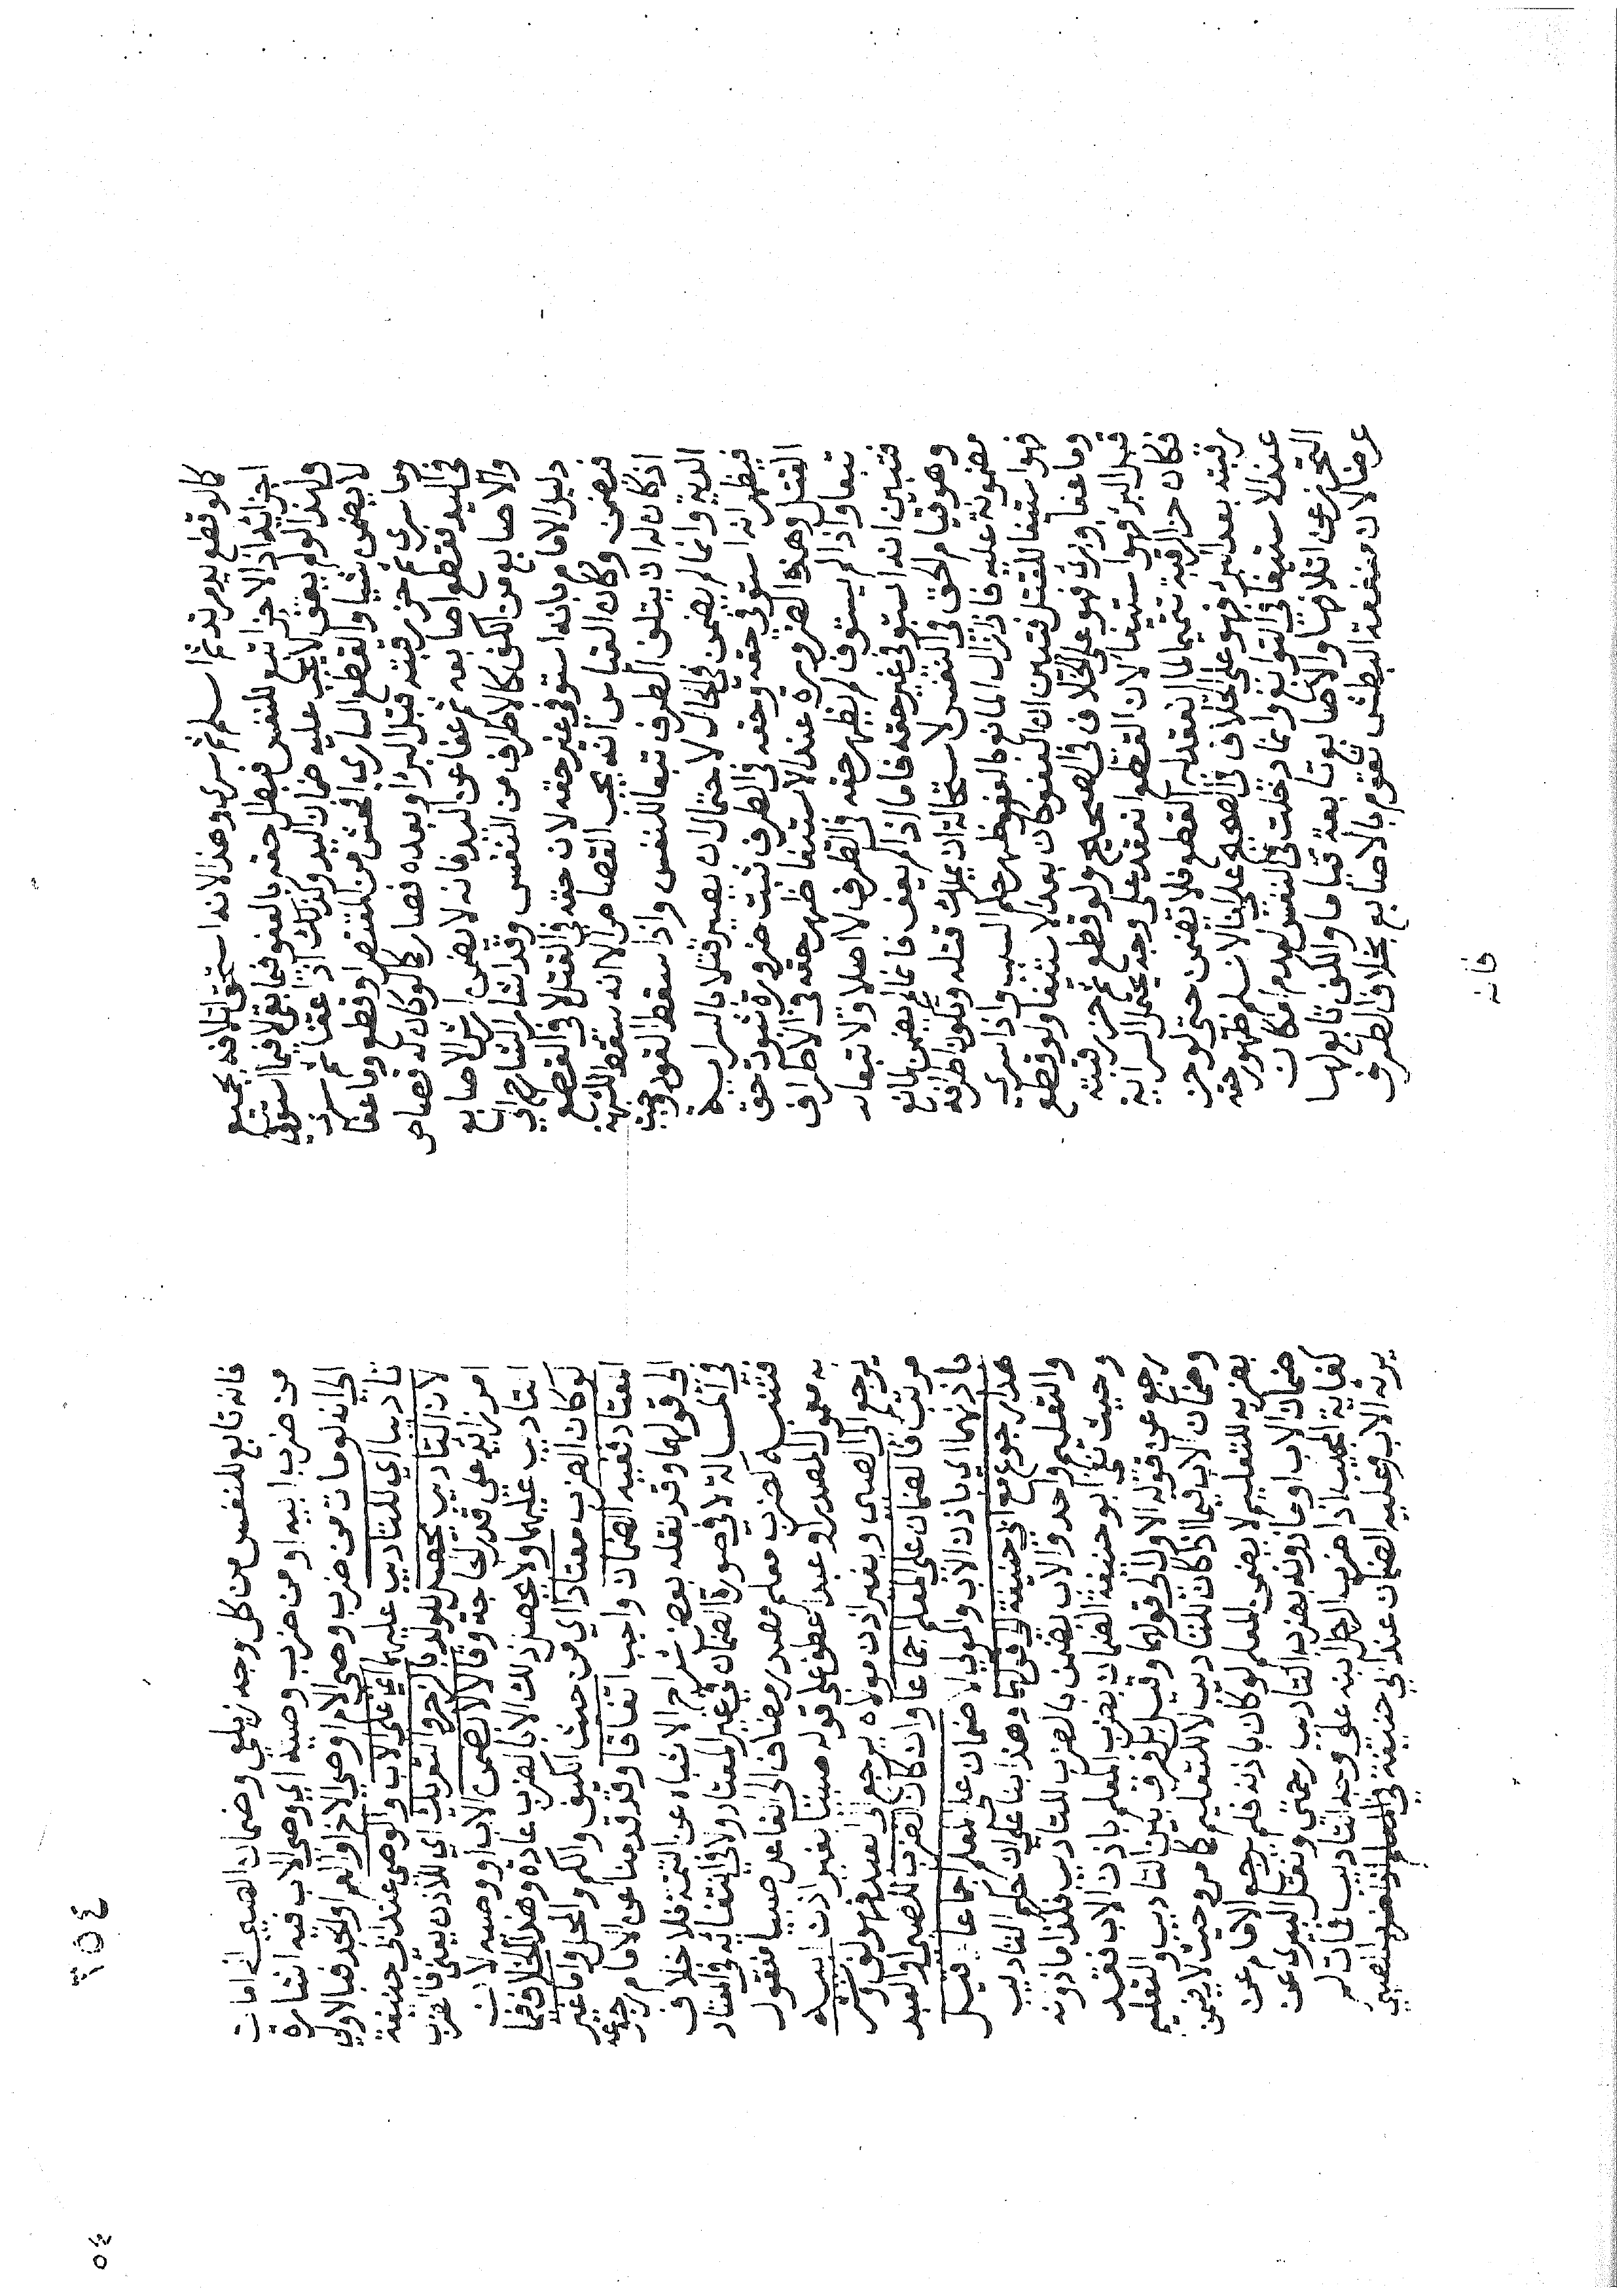 كما لو قطع يد مرتد ثم اسلم ثم سرى وهذا لانه استحق اتلافه بجميع
اجزائه اذ الاجزا تبع للنفس فبطل حقه بالعفو فيما بقي لا فيما استوفى
ولهذا لو لم يعف لا يجب عليه ضمان اليد وكذلك اذا عفا ثم سرى
لا يضمن شيا والقطع الساري افحش من المقتصر او قطع وما عفا
وما سرى ثم حز رقبته قبل البرا وبعده فصار كما لو كان له قصاص
في اليد فقطع اصابعه ثم عفا عن اليد فانه لا يضمن ارش الاصابع
والاصابع من الكف كالاطراف من النفس وقد اشار الشارح الى
دليل الامام بانه استوفى غير حقه لان حقه في القتل لا في القطع
فيضمن وكان القياس انه يجب القصاص الا انه سقط للشبهة
اذ كان له ان يتلف الطرف تبعا للنفس واذا سقط القود وجبت
الدية وانما لم يضمن في الحال لاحتمال ان يصير قتلا بالسراية
فيظهر انه استوفى حقه وحقه في الطرف ثبت ضرورة ثبوت حق
القتل وهذه الضرورة عند الاستيفا ظهر حقه في الاطراف
تبعا واذا لم يستوف لم يظهر حقه في الطرف لا اصلا ولا تبعا
فتبين انه استوفى غير حقه فاما اذا لم يعف فانما لم يضمن لمانع
وهو قيام الحق في النفس لاستحالة ان يملك قتله وتكون اطرافه
مضمونة عليه فاذا زال المانع بالعفو ظهر حكم السبب واذا سرى
فهو استيفا للقتل فتبين ان العفو كان بعد الاستيفا ولو قطع
وما عفا وبرئ فهو على الخلاف في الصحيح ولو قطع ثم حز رقبته
قبل البرء فهو استيفا لان القطع انعقد على وجه يحتمل السراية
فكان حز الرقبة تتميما لما انعقد له القطع فلا يضمن حتى لو حز
رقبته بعد البرء فهو على الخلاف في الصحيح على انا لا نسلم ظهور حقه
عند الاستيفا في التوابع وانما دخلت في النفس لعدم امكان
التحرز عن اتلافها والاصابع تابعة قياما والكف تابع لها
عرضا لان منفعة البطش تقوم بالاصابع بخلاف الطرف
فانه
٤٥٤
٥٤
فانه تابع للنفس من كل وجه زيلعي وضمان الصبي اذا مات
من ضرب ابيه او من ضرب وصيه اي وصي الاب فيه اشارة
الى انه لو مات من ضرب وصي الام او وصي الاخ او العم او الجد فبالاولى
تاديبا اي للتاديب عليهما اي على الاب والوصي عند ابي حنيفة
لان التاديب يحصل للولد بالزجر والتعريك اي للاذن يعني فالضرب
امر زائد على قدر الحاجة وقالا لا يضمن الاب او وصيه لان
التاديب عليهما ولا يحصل ذلك الا بالضرب عادة وهذا الخلاف فيما
لو كان الضرب معتادا اي من حيث الكيف والكم والمحل واما غير
المعتاد ففيه الضمان واجب اتفاقا وقد قدمنا عن الامام رجوعه
الى قولهما وقد نقله بعض شراح الاشباه عن التتمة فلا خلاف
في المسالة لا في صورة الضمان في غير المعتاد ولا في انتفائه في المعتاد
فتنبه كضرب معلم مصدر مضاف الى الفاعل صبيا مفعول
به معمول المصدر او عبدا عطف على قوله صبيا بغير اذن ابيه
يرجع الى الصبي وبغير اذن مولاه يرجع الى العبد فهو لف ونشر
مرتب فالضمان على المعلم اجماعا وان كان الضرب للصبي او العبد
باذنهما اي باذن الاب والمولى لا ضمان على المعلم اجماعا قيل
هذا رجوع من ابي حنيفة الى قولهما وهذا بناء على ان حكم التاديب
والتعليم واحد والاب يضمن بالضرب للتاديب فكذا ماذونه
وحيث نفى ابو حنيفة الضمان بضرب المعلم باذن الاب فقد
رجع عن قوله الاول الى قولهما وقيل بل فرق بين التاديب والتعليم
وضمان الاب فيما اذا كان للتاديب لا للتعليم كما مر وحيث لا يضمن
بضربه للتعليم لا يضمن المعلم لو كان باذنه فلم يرجع الامام عن
ضمان الاب او ماذونه بضرب التاديب رحمتي ونقل البيري عن
كفاية المجيب اذا ضرب الرجل ابنه على وجه التاديب فمات لم
يرثه الاب وعليه الضمان عند ابي حنيفة